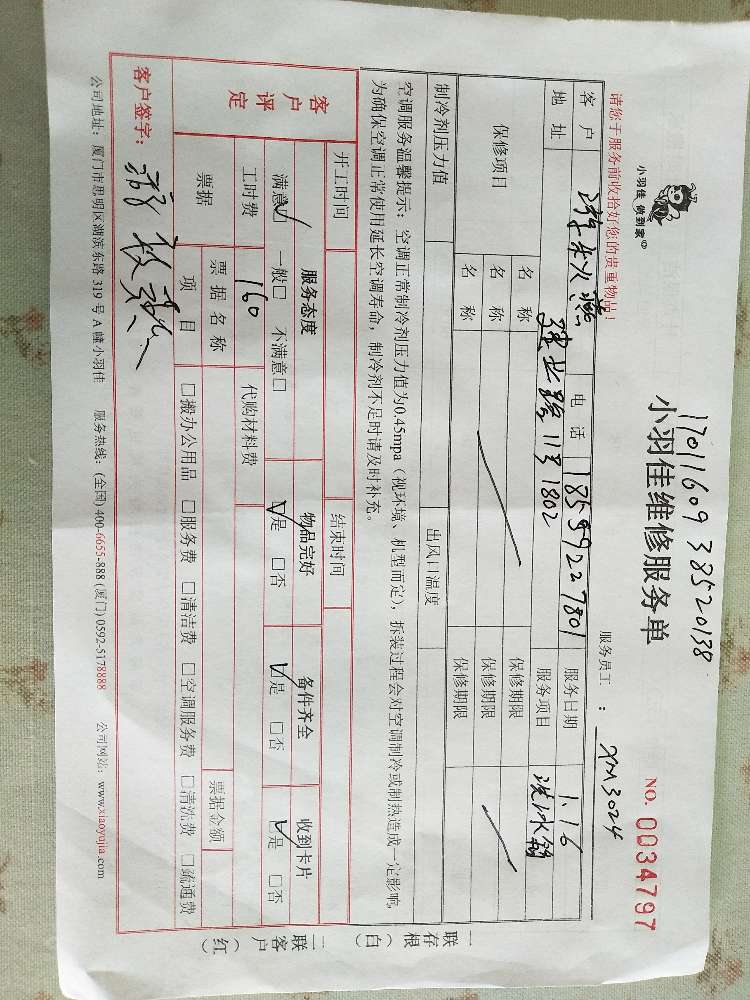 小羽佳 做到家
1701160938520138
小羽佳维修服务单
NO. 0034797
请您于服务前收拾好您的贵重物品!
服务员工: XM3024
客户 电话 18559227801 服务日期 1.16
地址 11号1802 服务项目 洗冰箱
保修项目 名称 保修期限
名称 保修期限
名称 保修期限
制冷剂压力值 出风口温度
空调服务温馨提示:空调正常制冷剂压力值为0.45mpa(视环境、机型而定),拆装过程会对空调制冷或制热造成一定影响,
为确保空调正常使用延长空调寿命,制冷剂不足时请及时补充。
开工时间 结束时间
客户评定 服务态度 物品完好 备件齐全 收到卡片
满意☑ 一般□ 不满意□ ☑是 □否 ☑是 □否 ☑是 □否
工时费 160 代购材料费
票据 票据名称 票据金额
项目 □搬办公用品 □服务费 □清洁费 □空调服务费 □清洗费 □疏通费
客户签字:
公司地址:厦门市思明区湖滨东路319号A幢小羽佳 服务热线:(全国)400-6655-888 (厦门)0592-5178888 公司网站:www.xiaoyujia.com
一联存根(白)
二联客户(红)